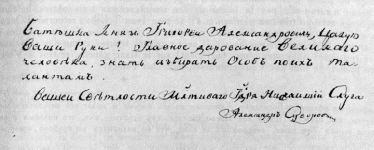 Батюшка Князь Григорей Александровичь, Цалую
Ваши Руки! Главное дарование Великаго
человека, знать избирать особ по их та-
лантам.
Вашей Светлости Милостиваго Гдря Нижайший Слуга
Александръ Суворовъ